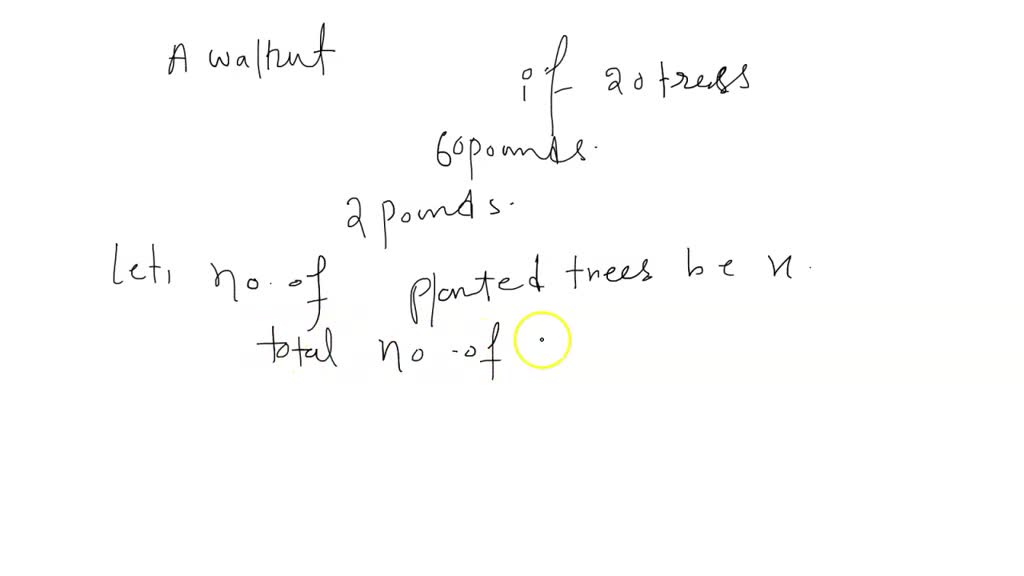 A walnut
if 20 tress
60 pounds.
2 pounds.
Let, no. of planted trees be x.
total no. of